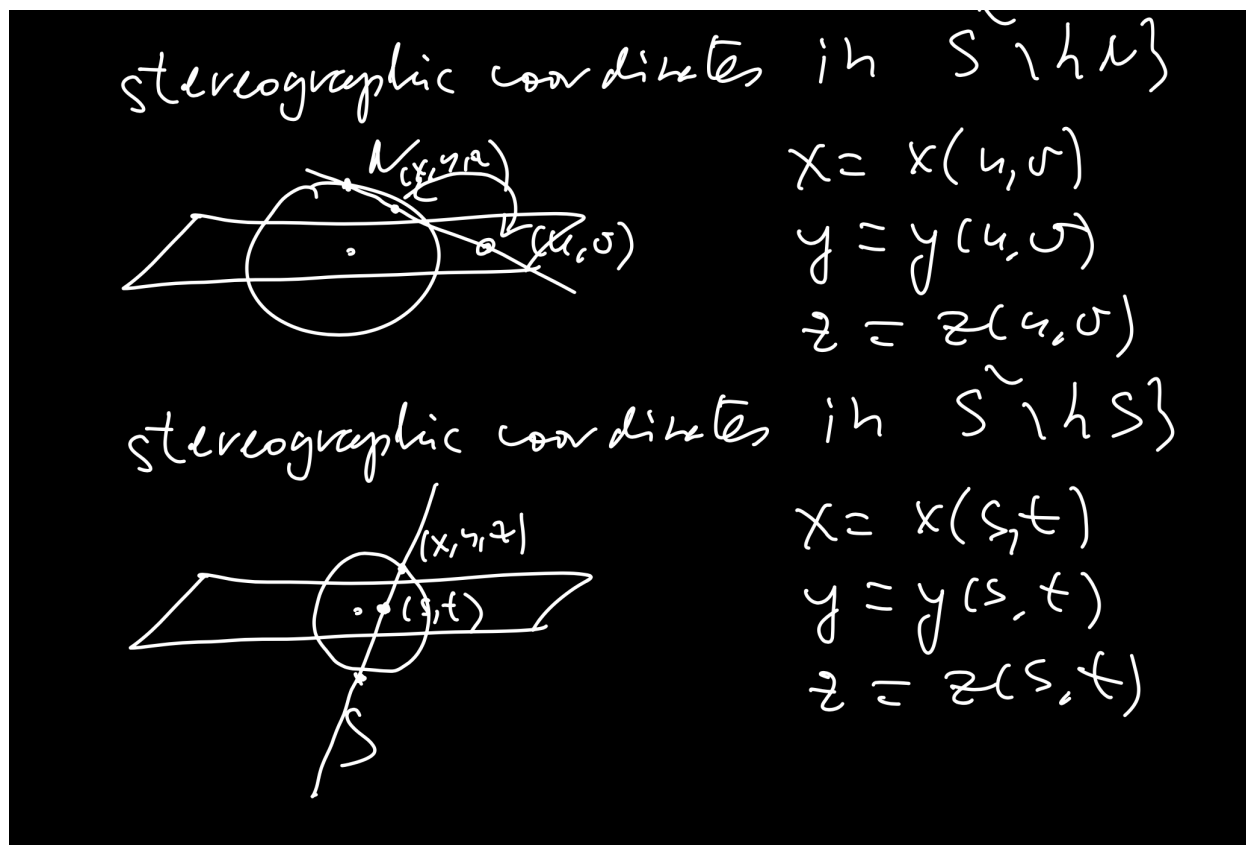 stereographic coordinates in S² \ {N}
N (x, y, z)
(u, v)
x = x(u, v)
y = y(u, v)
z = z(u, v)
stereographic coordinates in S² \ {S}
(x, y, z)
(s, t)
S
x = x(s, t)
y = y(s, t)
z = z(s, t)